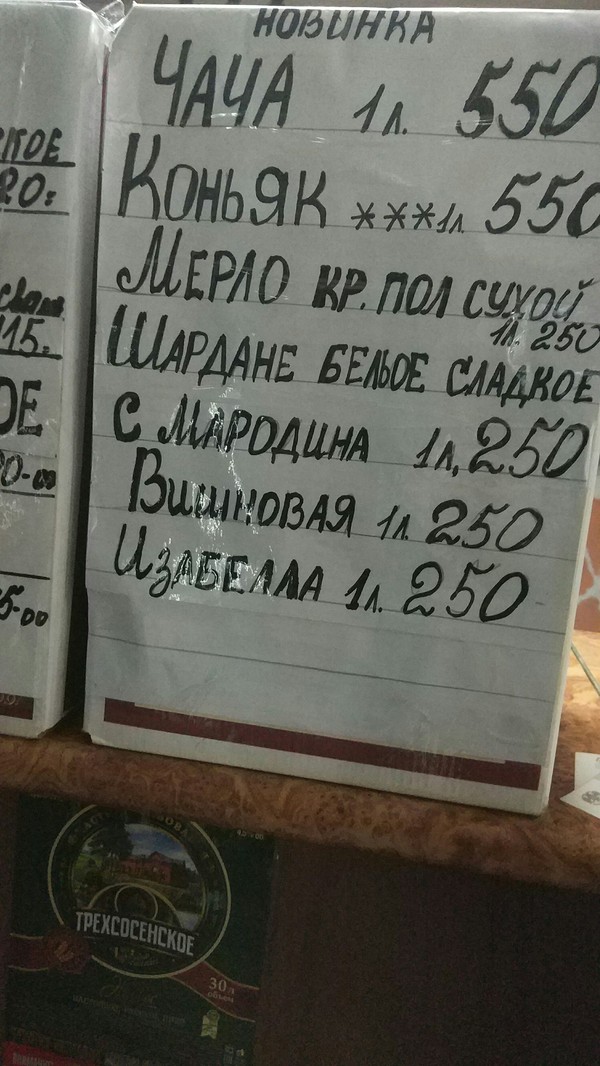 НОВИНКА
ЧАЧА 1л. 550
КОНЬЯК ***1л 550
МЕРЛО КР. ПОЛ СУХОЙ
1л. 250
ШАРДАНЕ БЕЛЬОЕ СЛАДКОЕ
С МАРОДИНА 1л, 250
ВИШНОВАЯ 1л. 250
ИЗАБЕЛЛА 1л. 250
КОЕ
20=
15=
ОЕ
0-00
5-00
ТРЕХСОСЕНСКОЕ
30л
объем